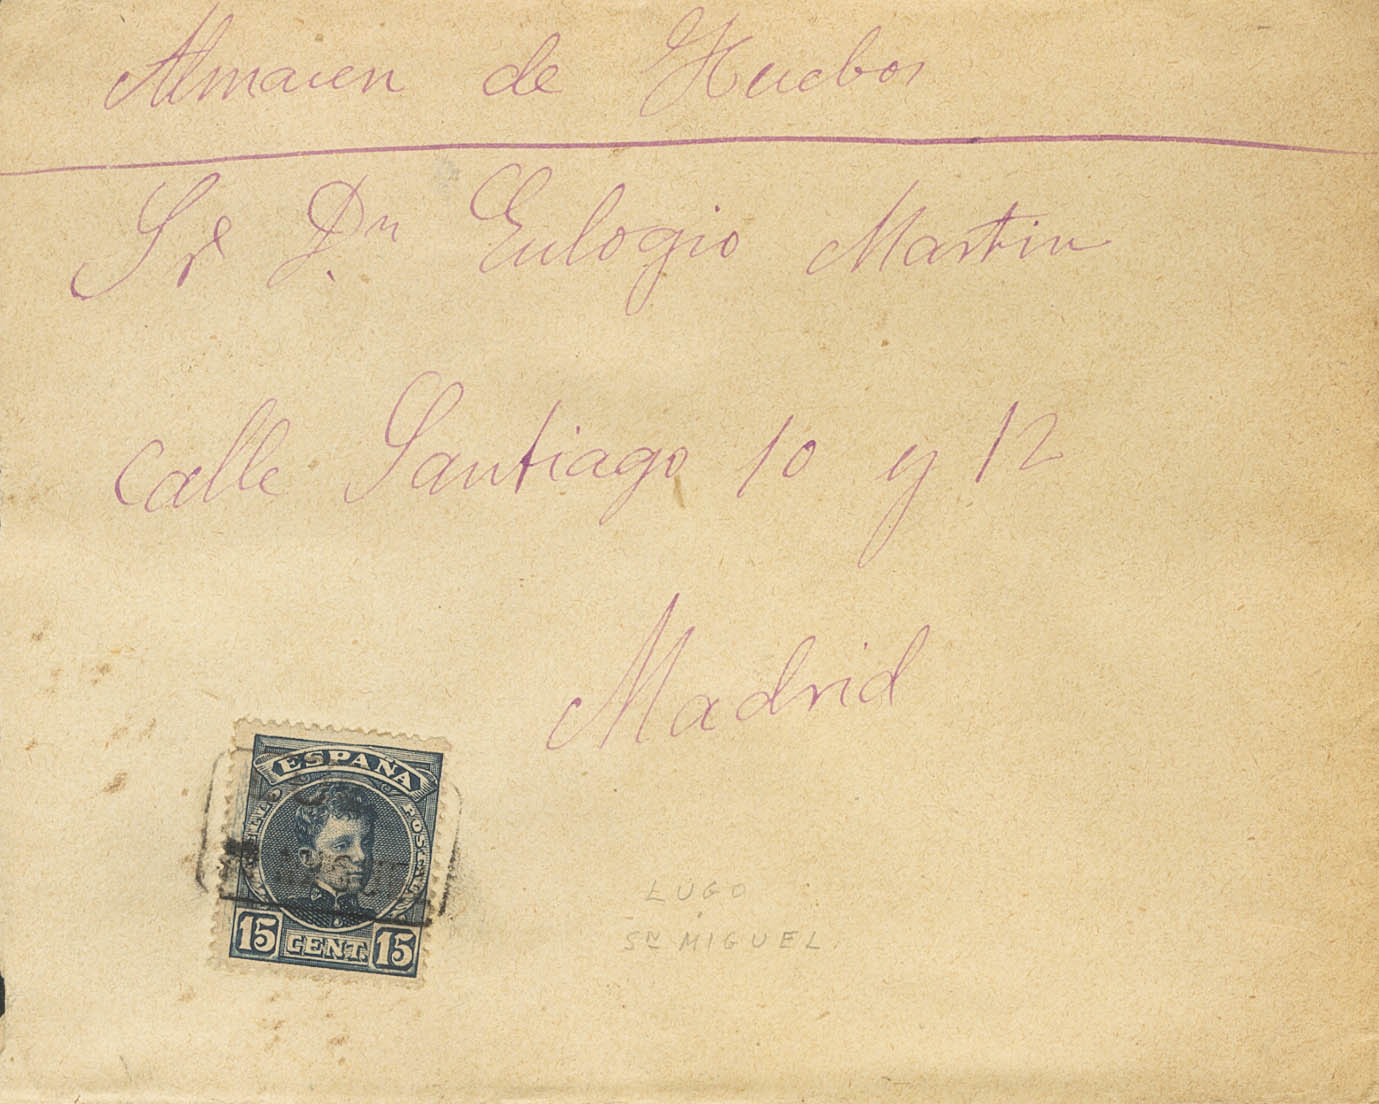 Almacen de Huebos
Sr Dn Eulogio Martin
Calle Santiago 10 y 12
Madrid
ESPAÑA
15 CENT. 15
LUGO
Sn MIGUEL